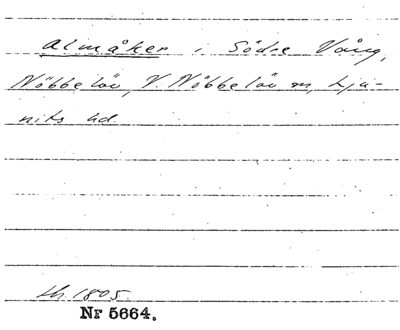 Almåker i Södre Vång,
Nöbbelöv, V. Nöbbelöv sn, Lju-
nits hd.
Lh. 1805.
Nr 5664.